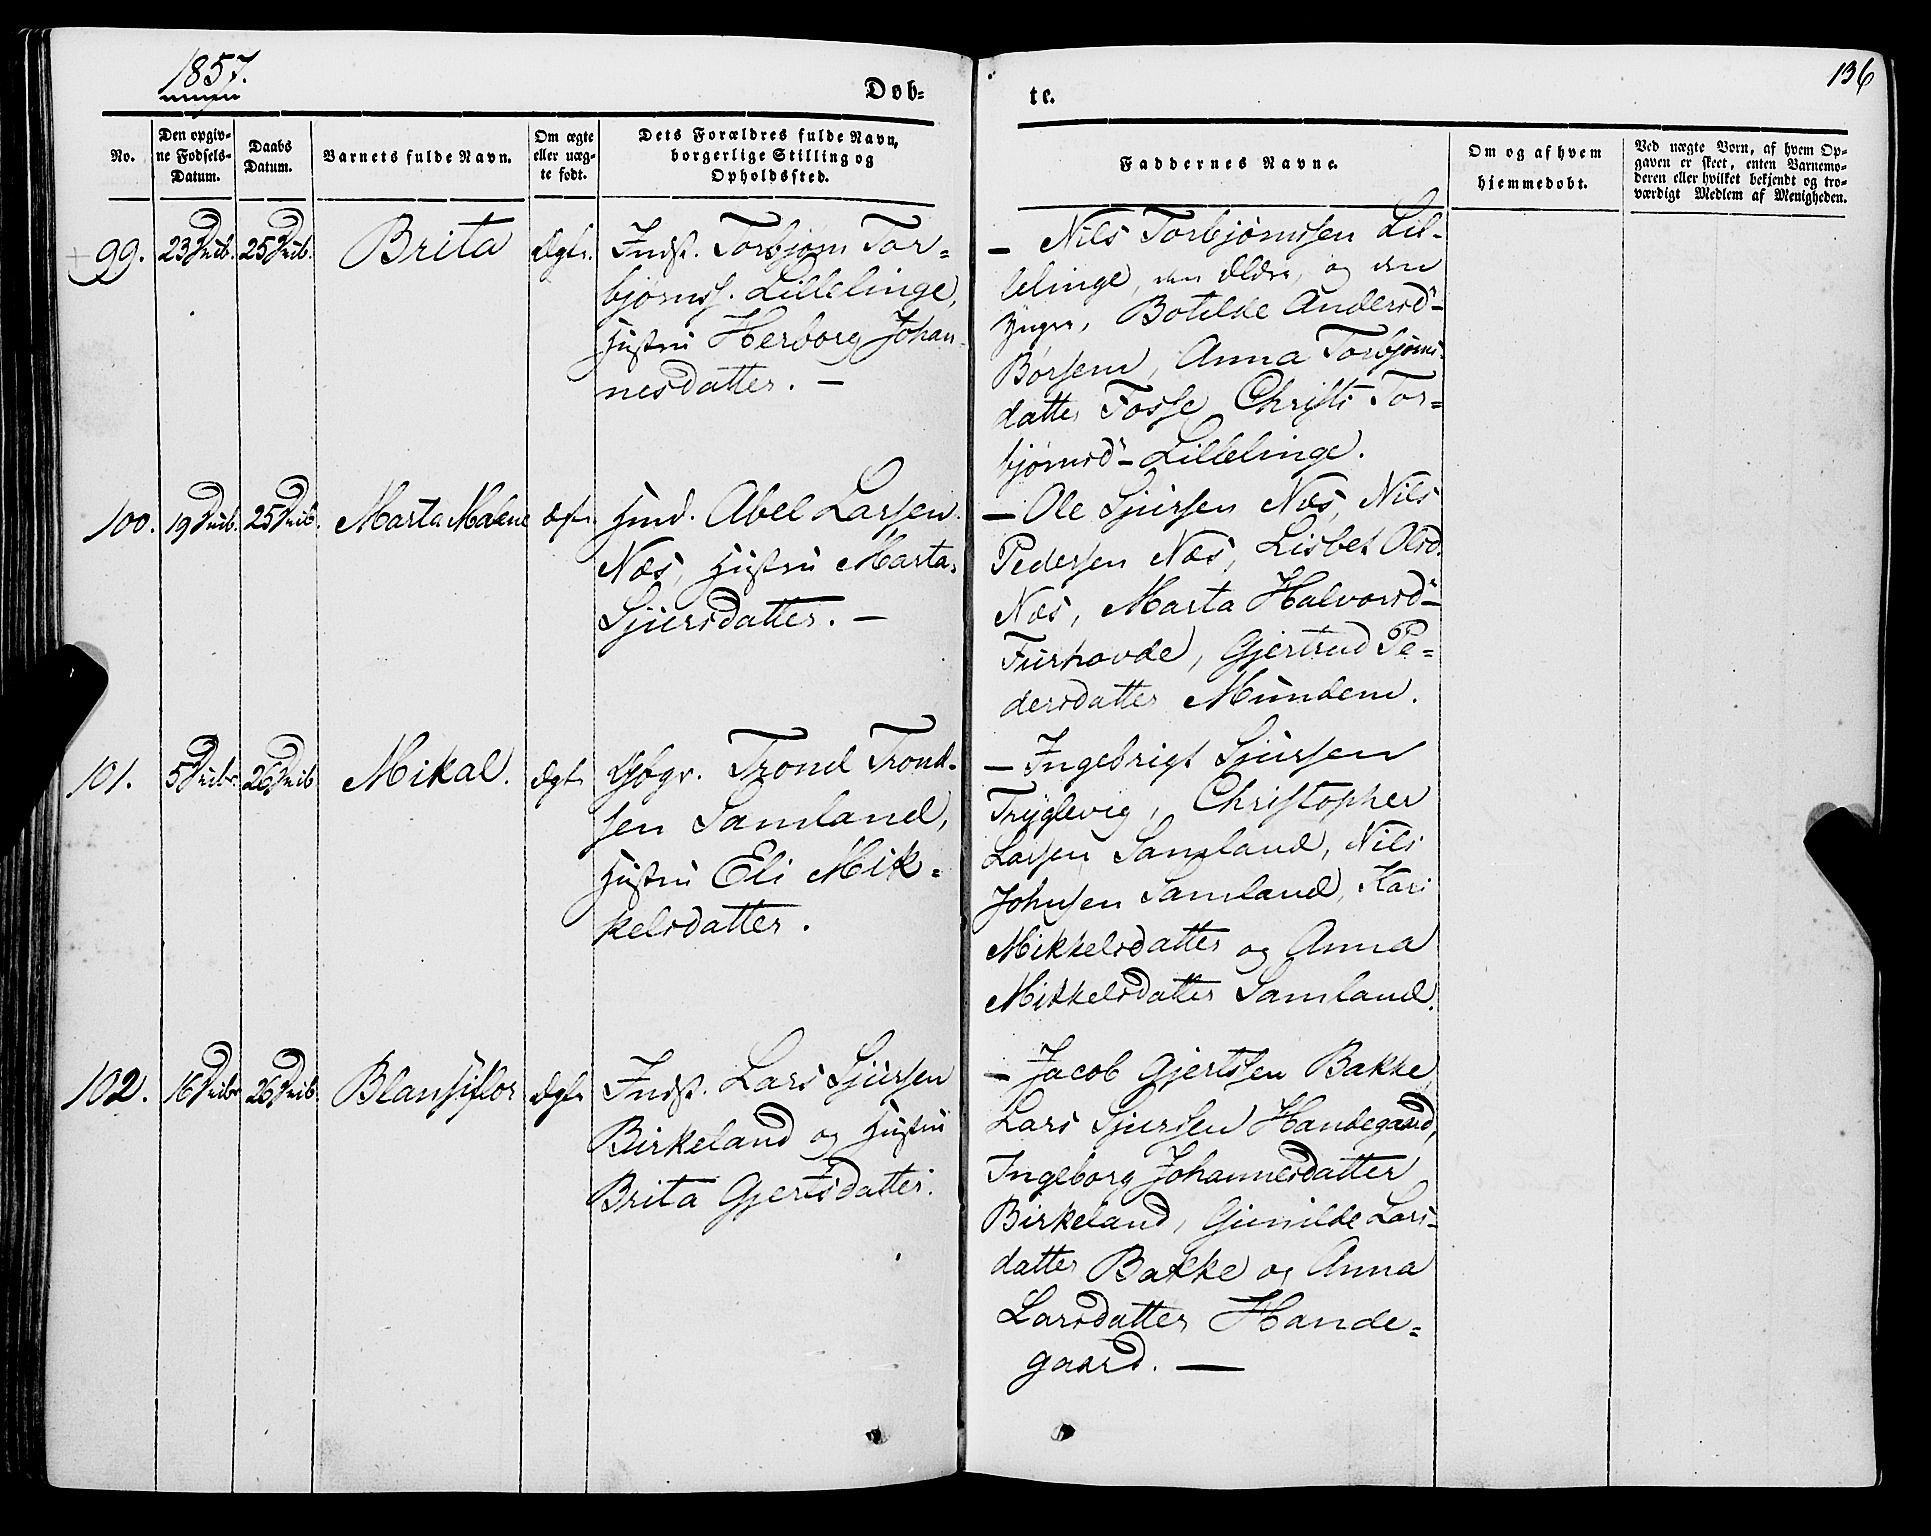 1857.
Døb-
te.
136
No.
Den opgiv-
ne Fødsels-
Datum.
Daabs
Datum.
Barnets fulde Navn.
Om ægte
eller uæg-
te født.
Dets Forældres fulde Navn,
borgerlige Stilling og
Opholdssted.
Faddernes Navne.
Om og af hvem
hjemmedøbt.
Ved uægte Børn, af hvem Op-
gaven er skeet, enten Barnemo-
deren eller hvilket bekjendt og tro-
værdigt Medlem af Menigheden.
99.
25
Brita
Ægte.
Indst. Torbjørn Tor=
bjørnss. Lillelinge,
Hustru Herborg Johan-
nesdatter. —
— Nils Torbjørnssen Lil-
lelinge, den Ældre, og den
Yngre, Botilde Andersd-
Børsem, Anna Torbjørns-
datter Fosse, Christi Tor=
bjørnsd- Lillelinge.
100.
19
25
Marta Malene
Ægte.
Abel Larsen
Næs, Hustru Marta
Sjursdatter. —
— Ole Sjursen Næs, Nils
Pedersen Næs, Lisbet Olsd.
Næs, Marta Halvorsd-
Furhovde, Gjertrud Pe=
dersdatter Mundem.
101.
5
26
Mikal.
Ægte
Gbgr. Trond Trond-
sen Samland,
Hustru Eli Mik=
kelsdatter.
— Ingebrigt Sjursen
Tryglevig, Christopher
Larsen Samland, Nils
Johnsen Samland, Kari
Mikkelsdatter og Anna
Mikkelsdatter Samland.
102.
16
26
Blansiflor
Ægte
Indst. Lars Sjursen
Birkeland og Hustru
Brita Gjertsdatter.
— Jacob Gjertsen Bakke,
Lars Sjursen Handegaard,
Ingeborg Johannesdatter
Birkeland, Gunilde Lars-
datter Bakke og Anna
Larsdatter Hande=
gaard. —